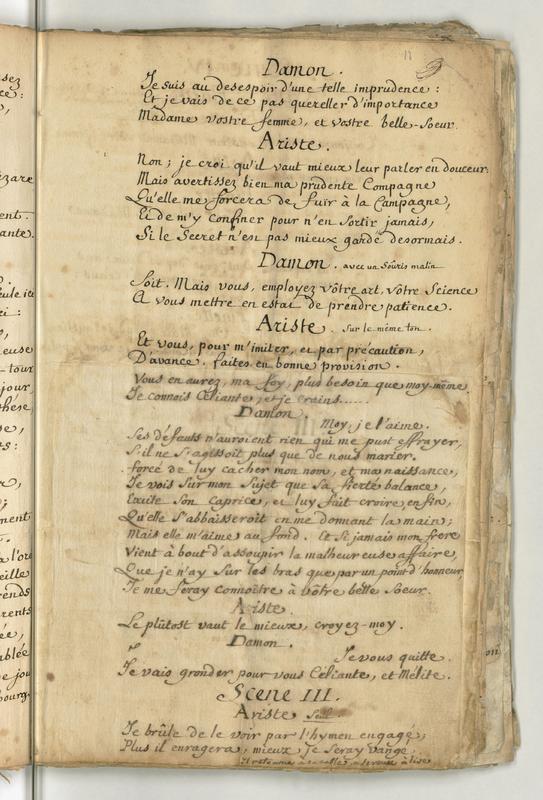 11
Damon.
Je suis au desespoir d'une telle imprudence :
Et je vais de ce pas quereller d'importance
Madame vostre femme, et vostre belle-Soeur.
Ariste.
Non ; je croi qu'il vaut mieux leur parler en douceur.
Mais avertissez bien ma prudente Compagne
Qu'elle me forcera de fuïr à la Campagne,
Et de m'y confiner pour n'en Sortir jamais,
Si le Secret n'est pas mieux gardé desormais.
Damon. avec un Soûris malin
Soit. Mais vous, employez vôtre art, vôtre Science
A vous mettre en estat de prendre patience.
Ariste. Sur le même ton.
Et vous, pour m'imiter, et par précaution,
D'avance, faites en bonne provision.
Vous en aurez, ma foy, plus besoin que moy-même.
Je connois Céliante, et je crains......
Damon.
Moy, je l'aime.
Ses défauts n'auroient rien qui me pust effrayer,
S'il ne S'agissoit plus que de nous marier.
forcé de luy cacher mon nom, et ma naissance,
Je vois Sur mon Sujet que Sa fierté balance,
Excite Son Caprice, et luy fait croire enfin,
Qu'elle S'abbaisseroit en me donnant la main ;
Mais elle m'aime au fond. Et Si jamais mon frere
Vient à bout d'assoupir la malheureuse affaire,
Que je n'ay Sur les bras que par un point d'honneur
Je me feray connoitre à vôtre belle Soeur.
Ariste.
Le plûtost vaut le mieux, croyez-moy.
Damon.
Je vous quitte.
Je vais gronder pour vous Céliante, et Mélite.
Scene III.
Ariste Seul.
Je brûle de le voir par l'hymen engagé ;
Plus il enragera, mieux je Seray vangé.